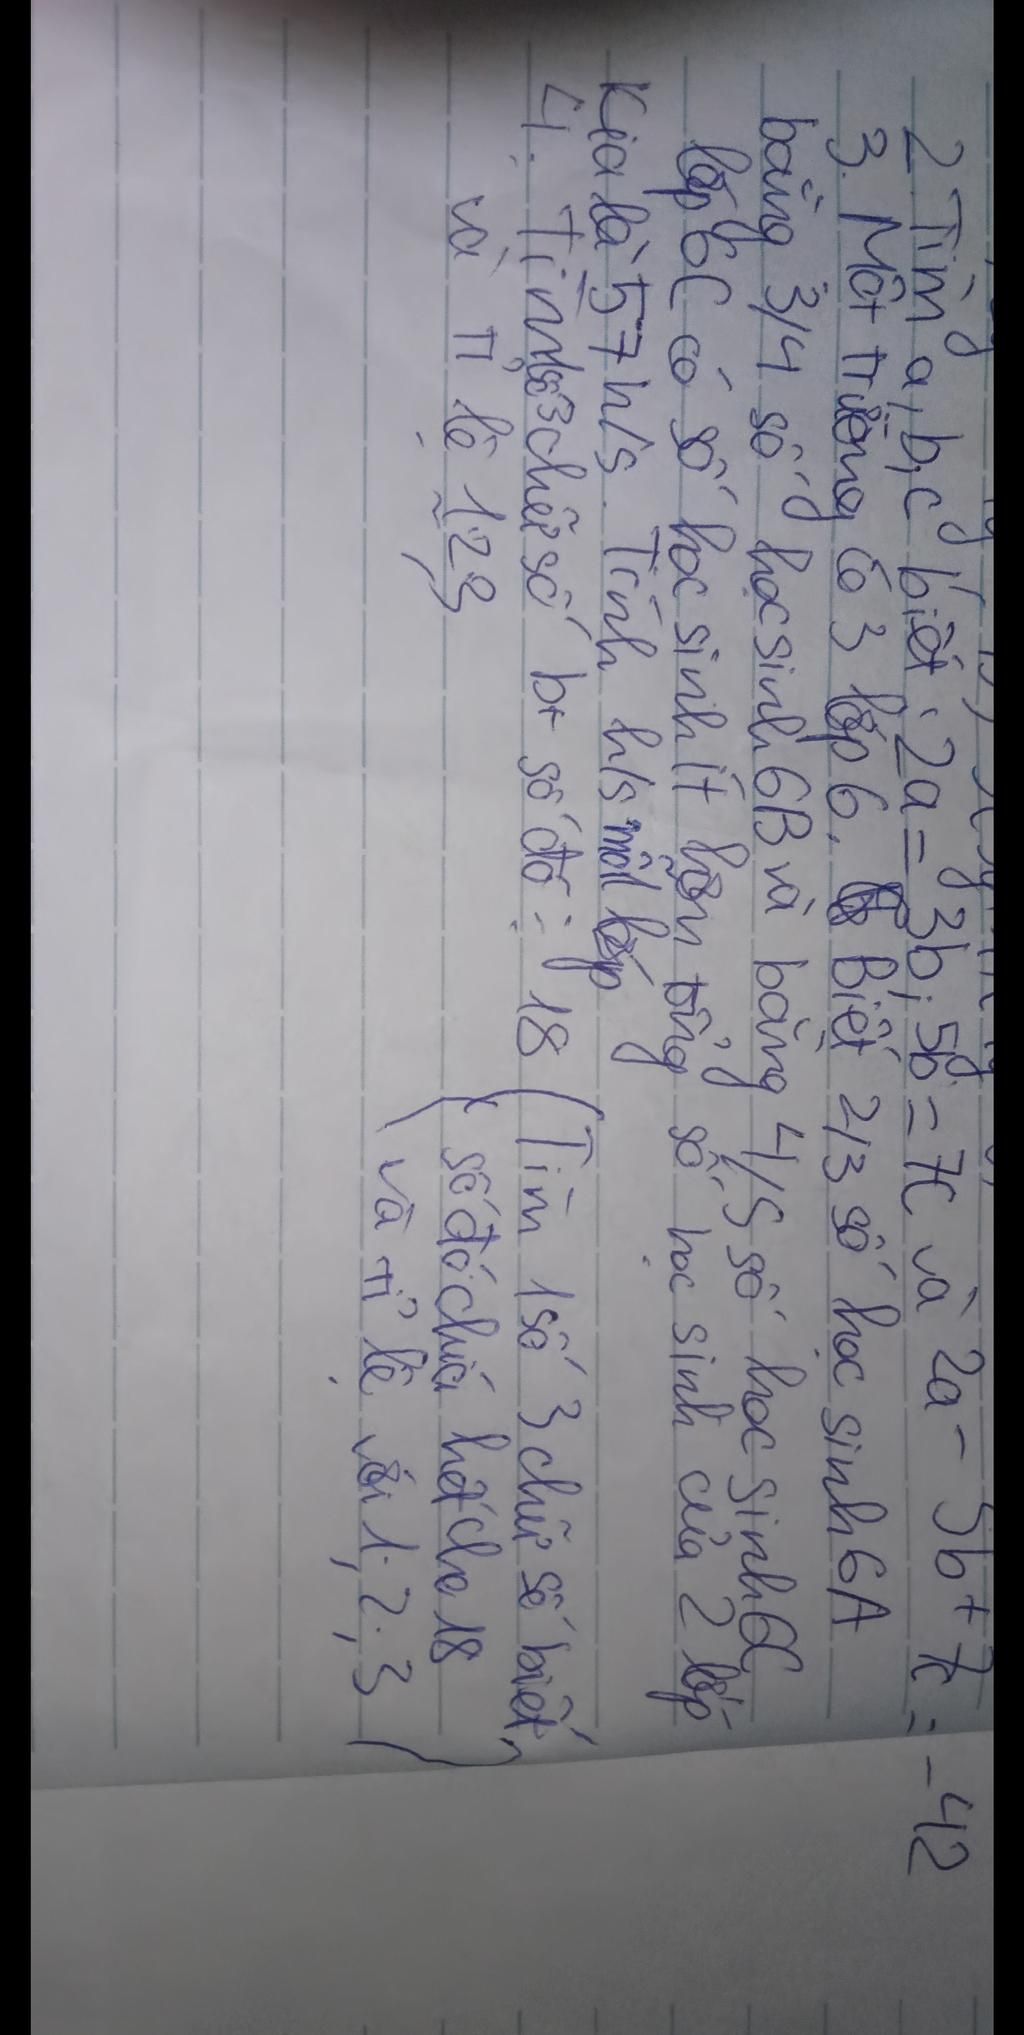 2. Tìm a, b, c biết: 2a = 3b; 5b = 7c và 2a - 5b + 7c = -42
3. Một trường có 3 lớp 6. Biết 2/3 số học sinh 6A
bằng 3/4 số học sinh 6B và bằng 4/5 số học sinh 6C
lớp 6C có số học sinh ít hơn tổng số học sinh của 2 lớp
kia là 57 h/s. Tính h/s mỗi lớp
4. Tìm số 3 chữ số bt số đó : 18 (Tìm 1 số 3 chữ số biết,
và tỉ lệ 1,2,3 ( số đó chia hết cho 18
( và tỉ lệ với 1, 2, 3 )